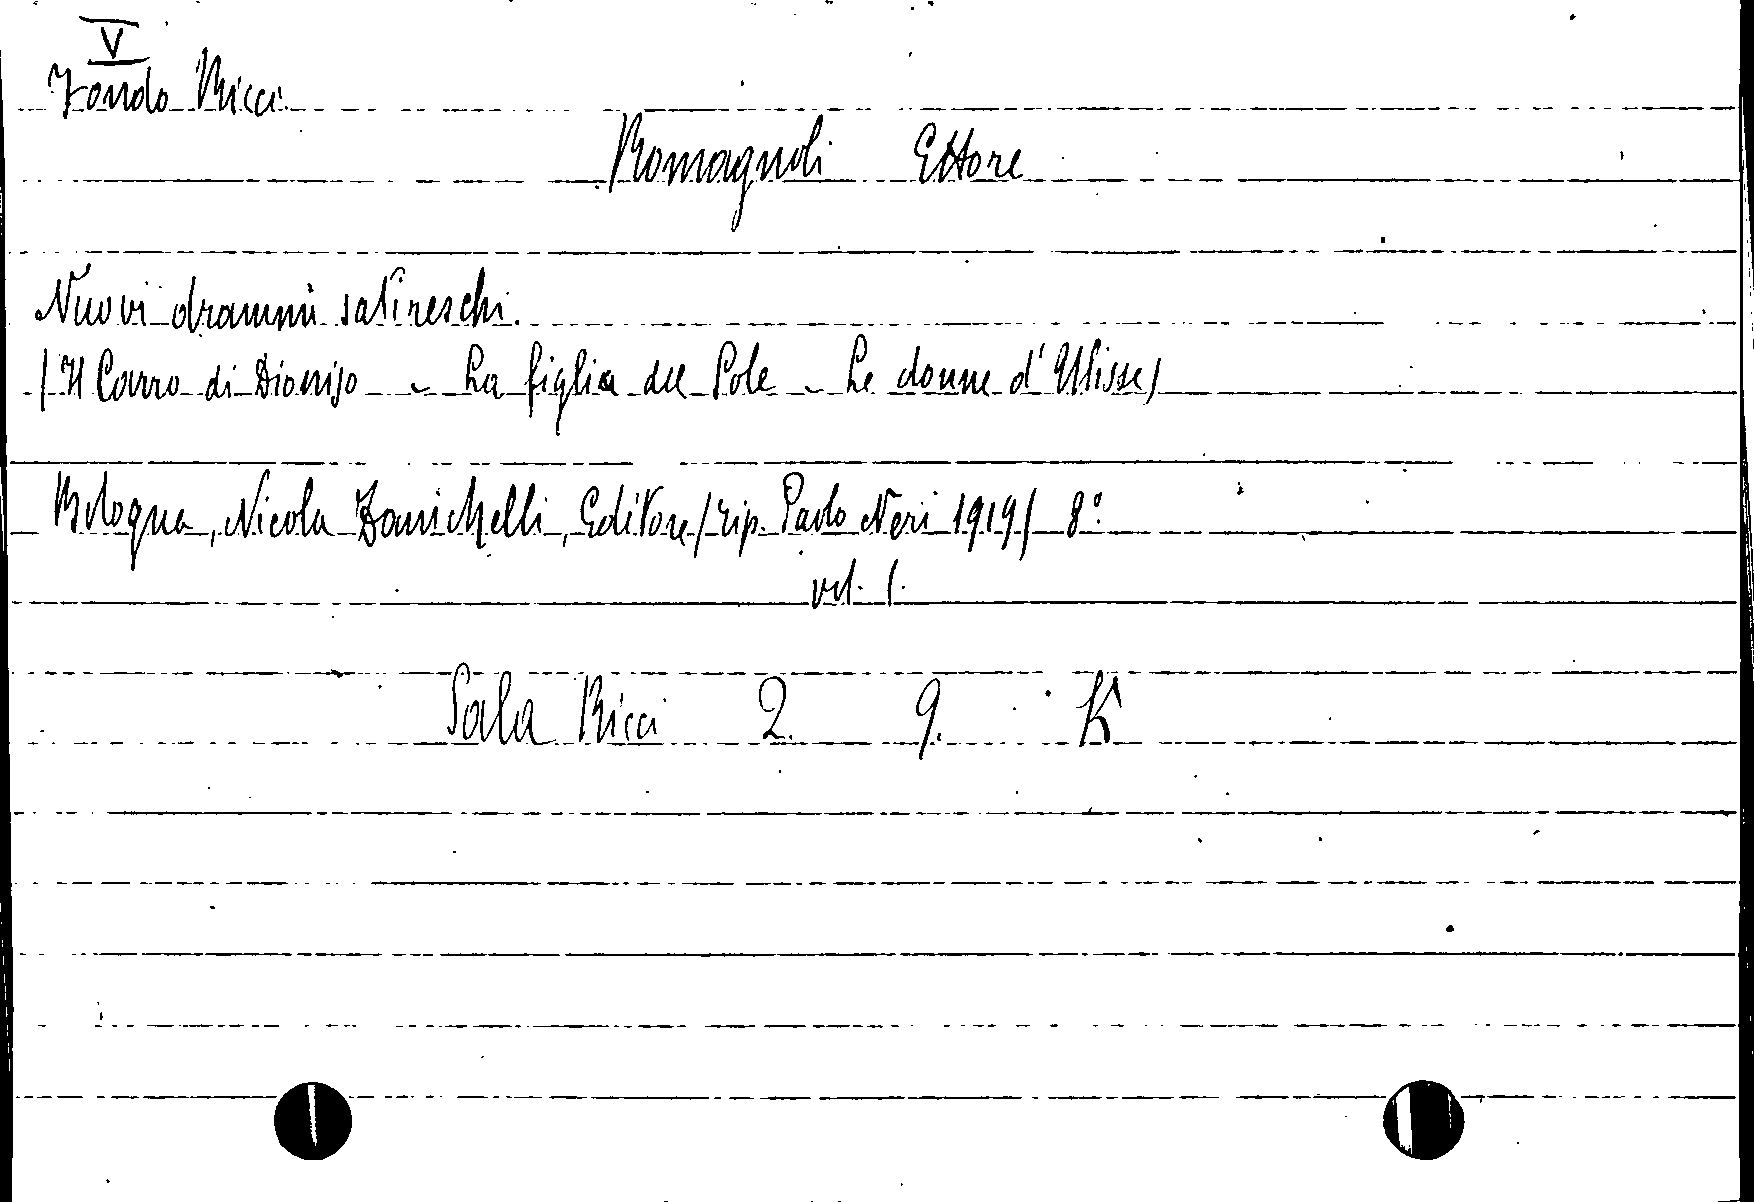 V
Fondo Ricci
Romagnoli Ettore
Nuovi drammi satireschi.
(Il Carro di Dioniso - La figlia del Sole - Le donne d'Ulisse)
Bologna, Nicola Zanichelli, Editore (Tip. Paolo Neri 1919) 8°
vol. 1.
Sala Ricci 2. 9. K